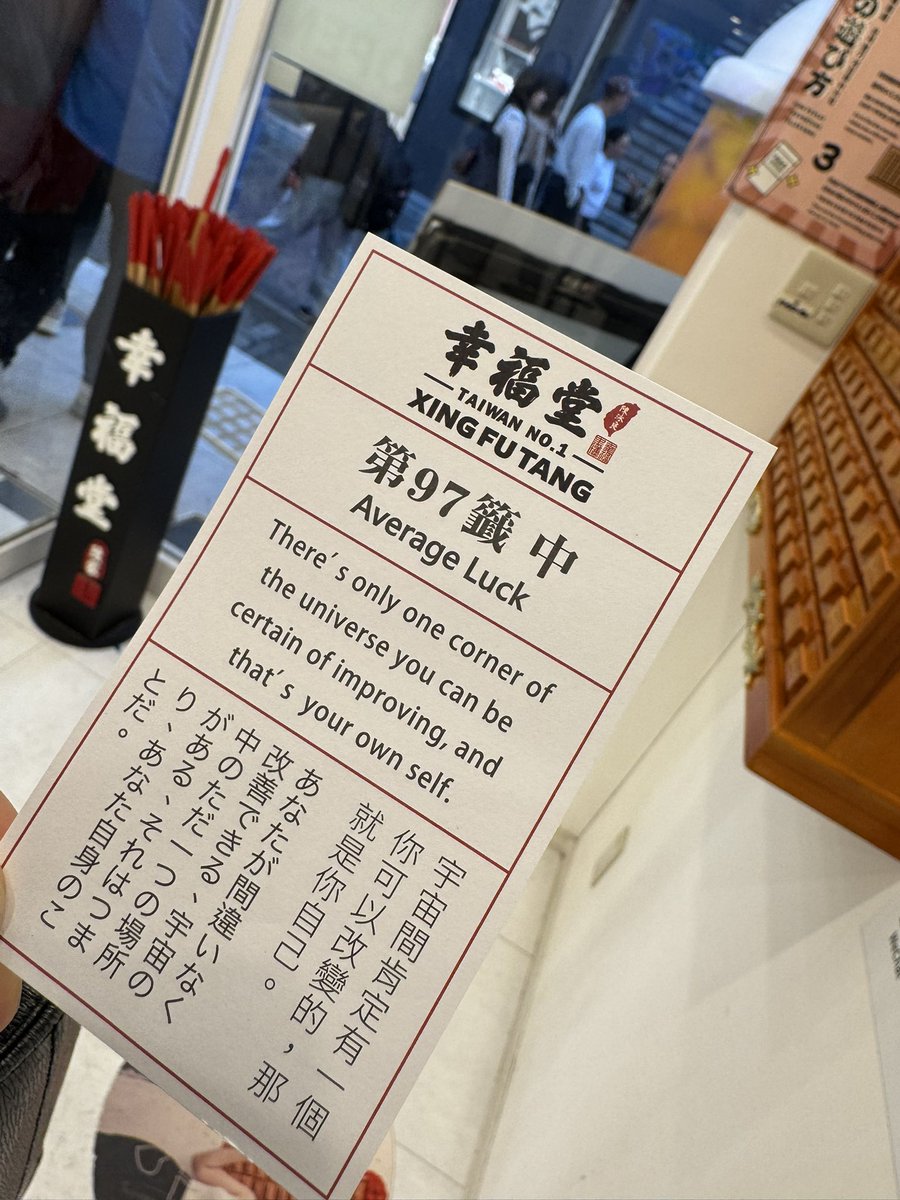 幸福堂
TAIWAN NO.1
XING FU TANG
第97籤 中
Average Luck
There's only one corner of
the universe you can be
certain of improving, and
that's your own self.
宇宙間肯定有一個
你可以改變的，那
就是你自己。
あなたが間違いなく
改善できる、宇宙の
中のただ一つの場所
がある、それはつま
り、あなた自身のこ
とだ。
幸福堂
び方
3